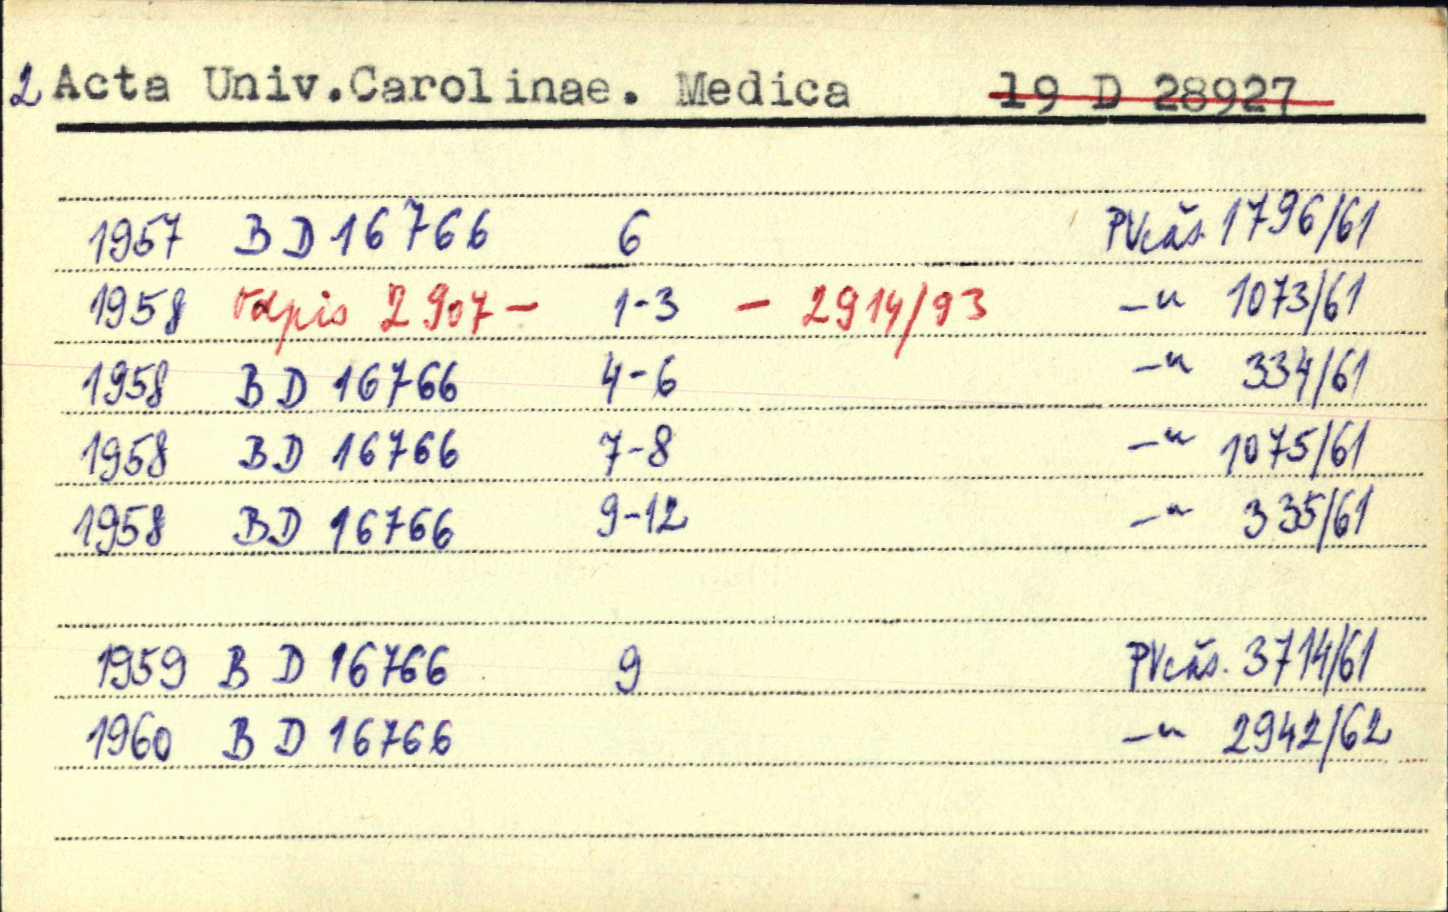 2 Acta Univ.Carolinae. Medica 19 D 28927
1957 BD 16766 6 PVčás. 1796/61
1958 Odpis 2907- 1-3 - 2914/93 -"- 1073/61
1958 BD 16766 4-6 -"- 334/61
1958 BD 16766 7-8 -"- 1075/61
1958 BD 16766 9-12 -"- 335/61
1959 BD 16766 9 PVčás. 3714/61
1960 BD 16766 -"- 2942/62